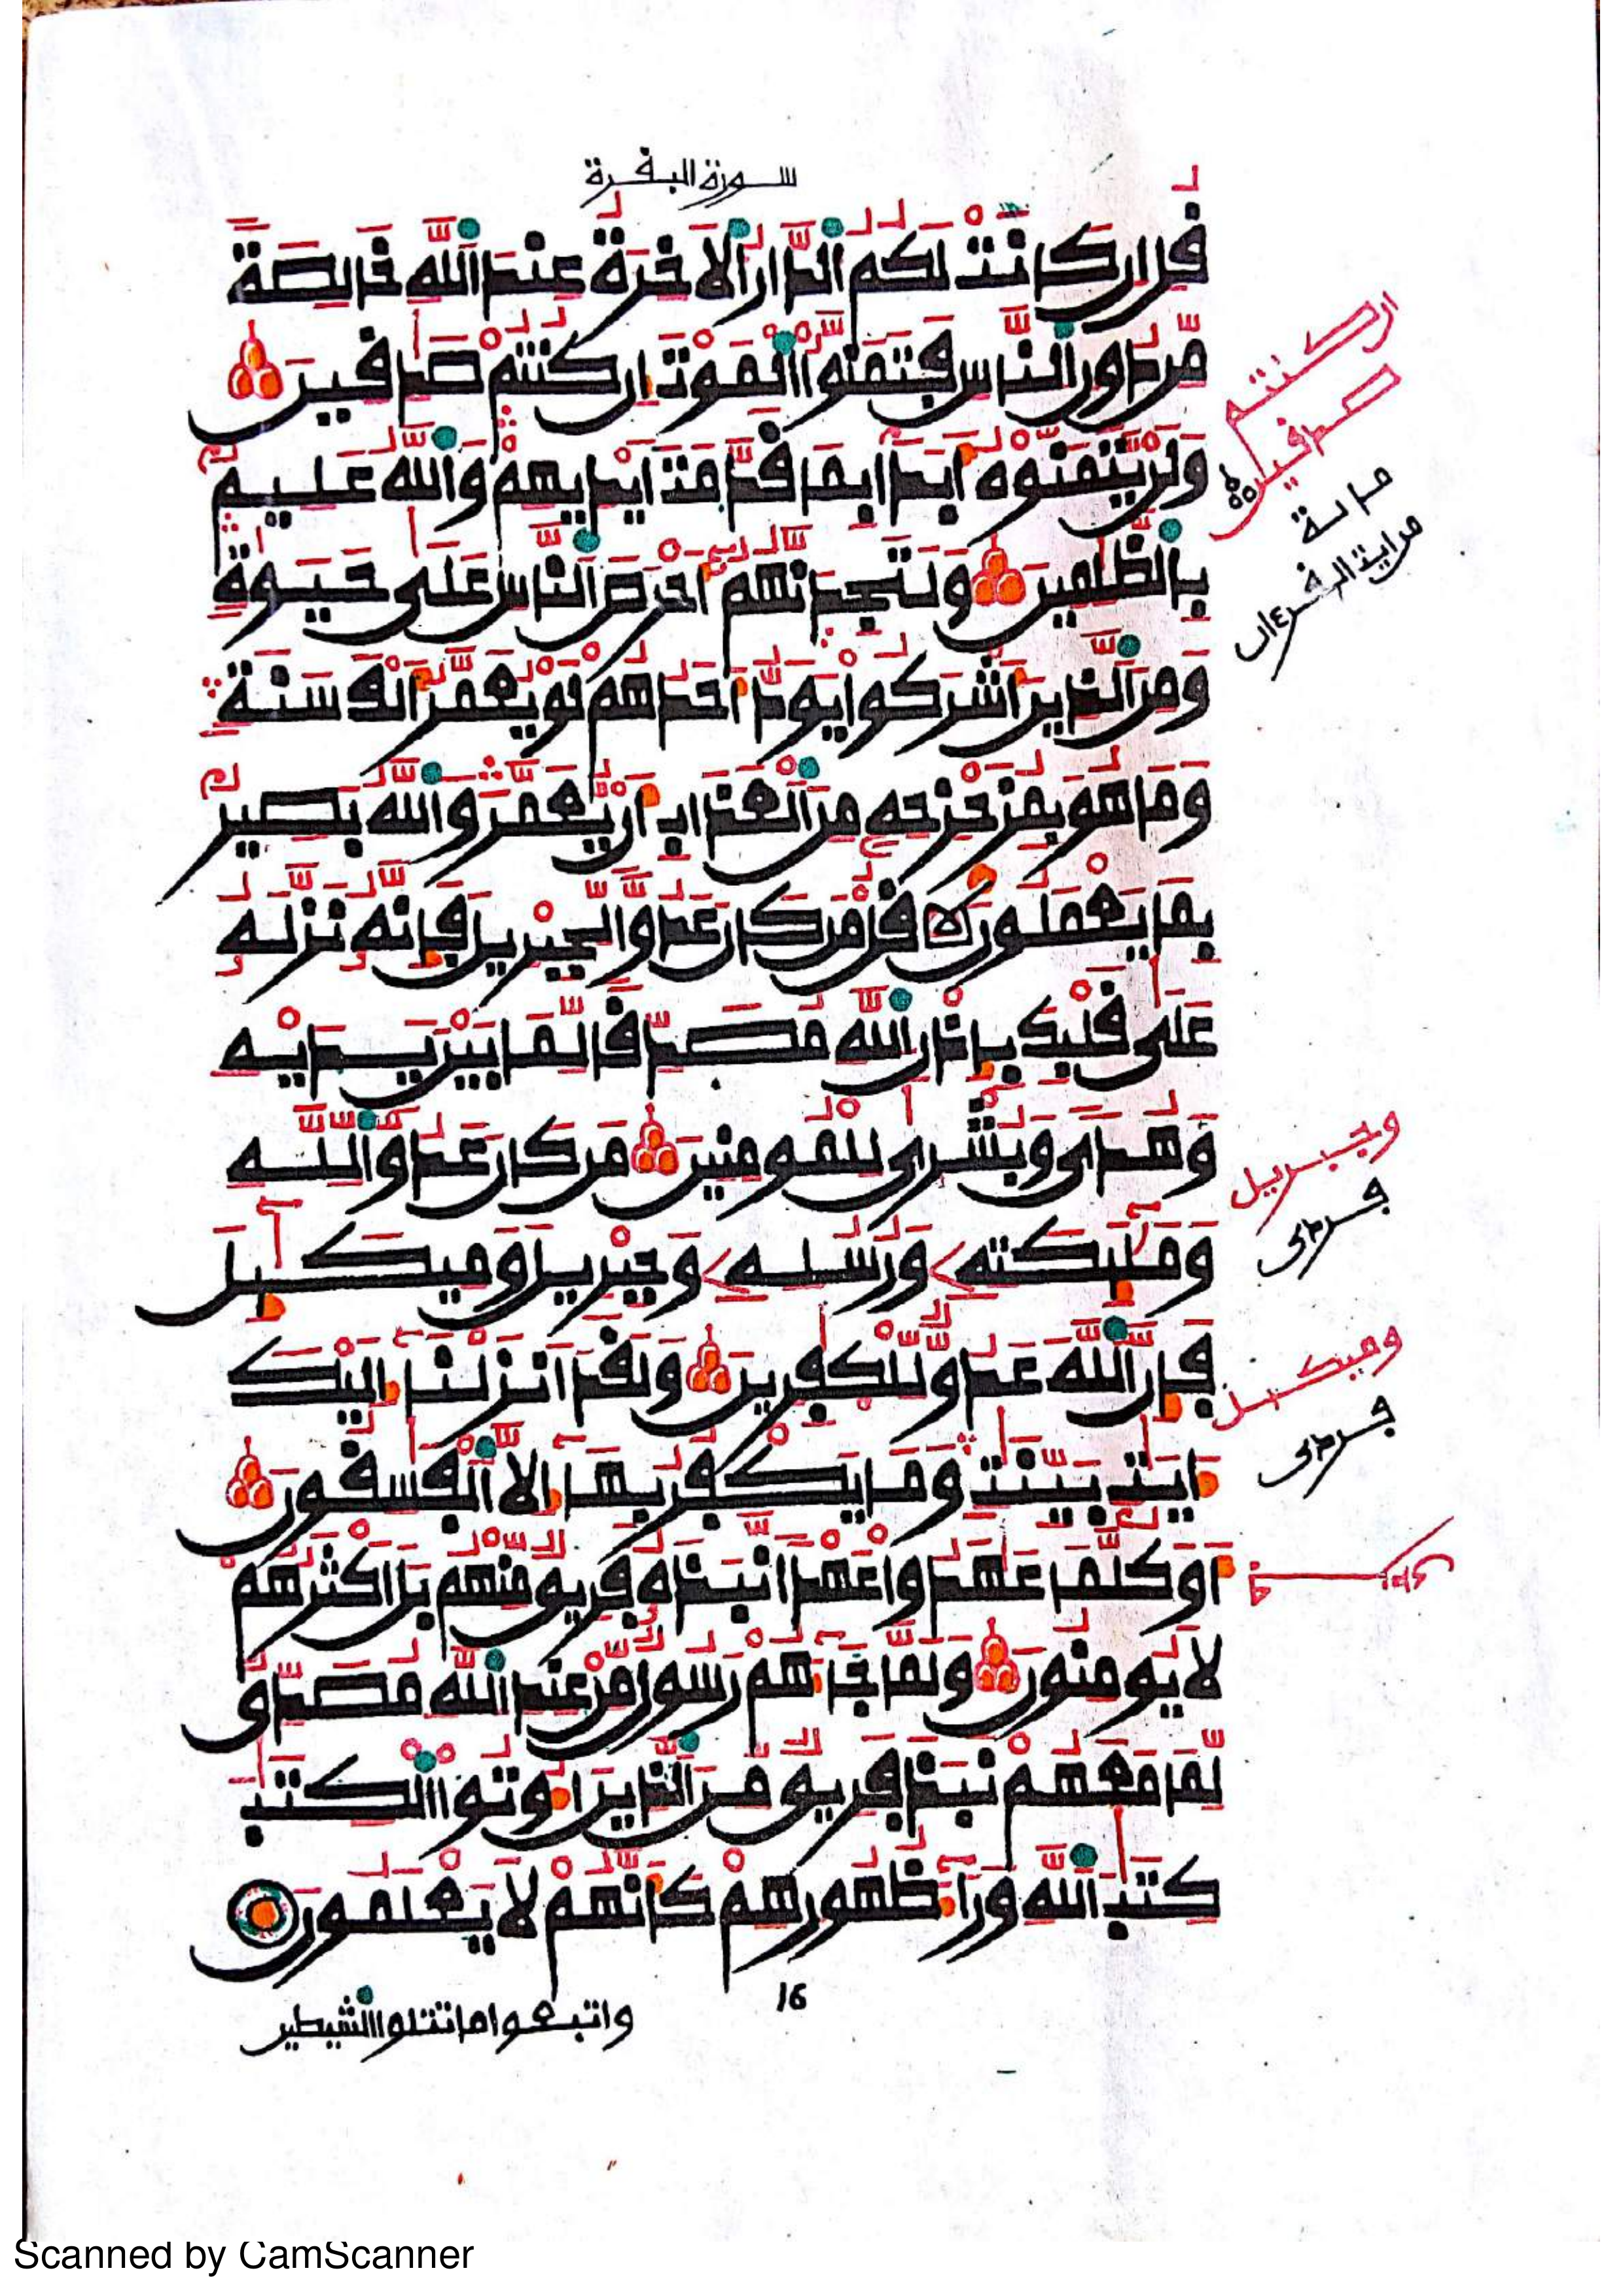 سورة البقرة
قل ان كانت لكم الدار الاخرة عند الله خالصة
من دون الناس فتمنوا الموت ان كنتم صدقين
ولن يتمنوه ابدا بما قدمت ايديهم والله عليم
بالظلمين ولتجدنهم احرص الناس على حيوة
ومن الذين اشركوا يود احدهم لو يعمر الف سنة
وما هو بمزحزحه من العذاب ان يعمر والله بصير
بما يعملون قل من كان عدوا لجبريل فانه نزله
على قلبك باذن الله مصدقا لما بين يديه
وهدى وبشرى للمومنين من كان عدوا لله
ومليكته ورسله وجبريل وميكيل
فان الله عدو للكفرين ولقد انزلنا اليك
ايت بينت وما يكفر بها الا الفسقون
او كلما عهدوا عهدا نبذه فريق منهم بل اكثرهم
لا يومنون ولما جاهم رسول من عند الله مصدق
لما معهم نبذ فريق من الذين اوتوا الكتب
كتب الله ورا ظهورهم كانهم لا يعلمون
16
واتبعوا ما تتلوا الشيطين
ان كنتم
صدقين
وجبريل
وميكيل
Scanned by CamScanner